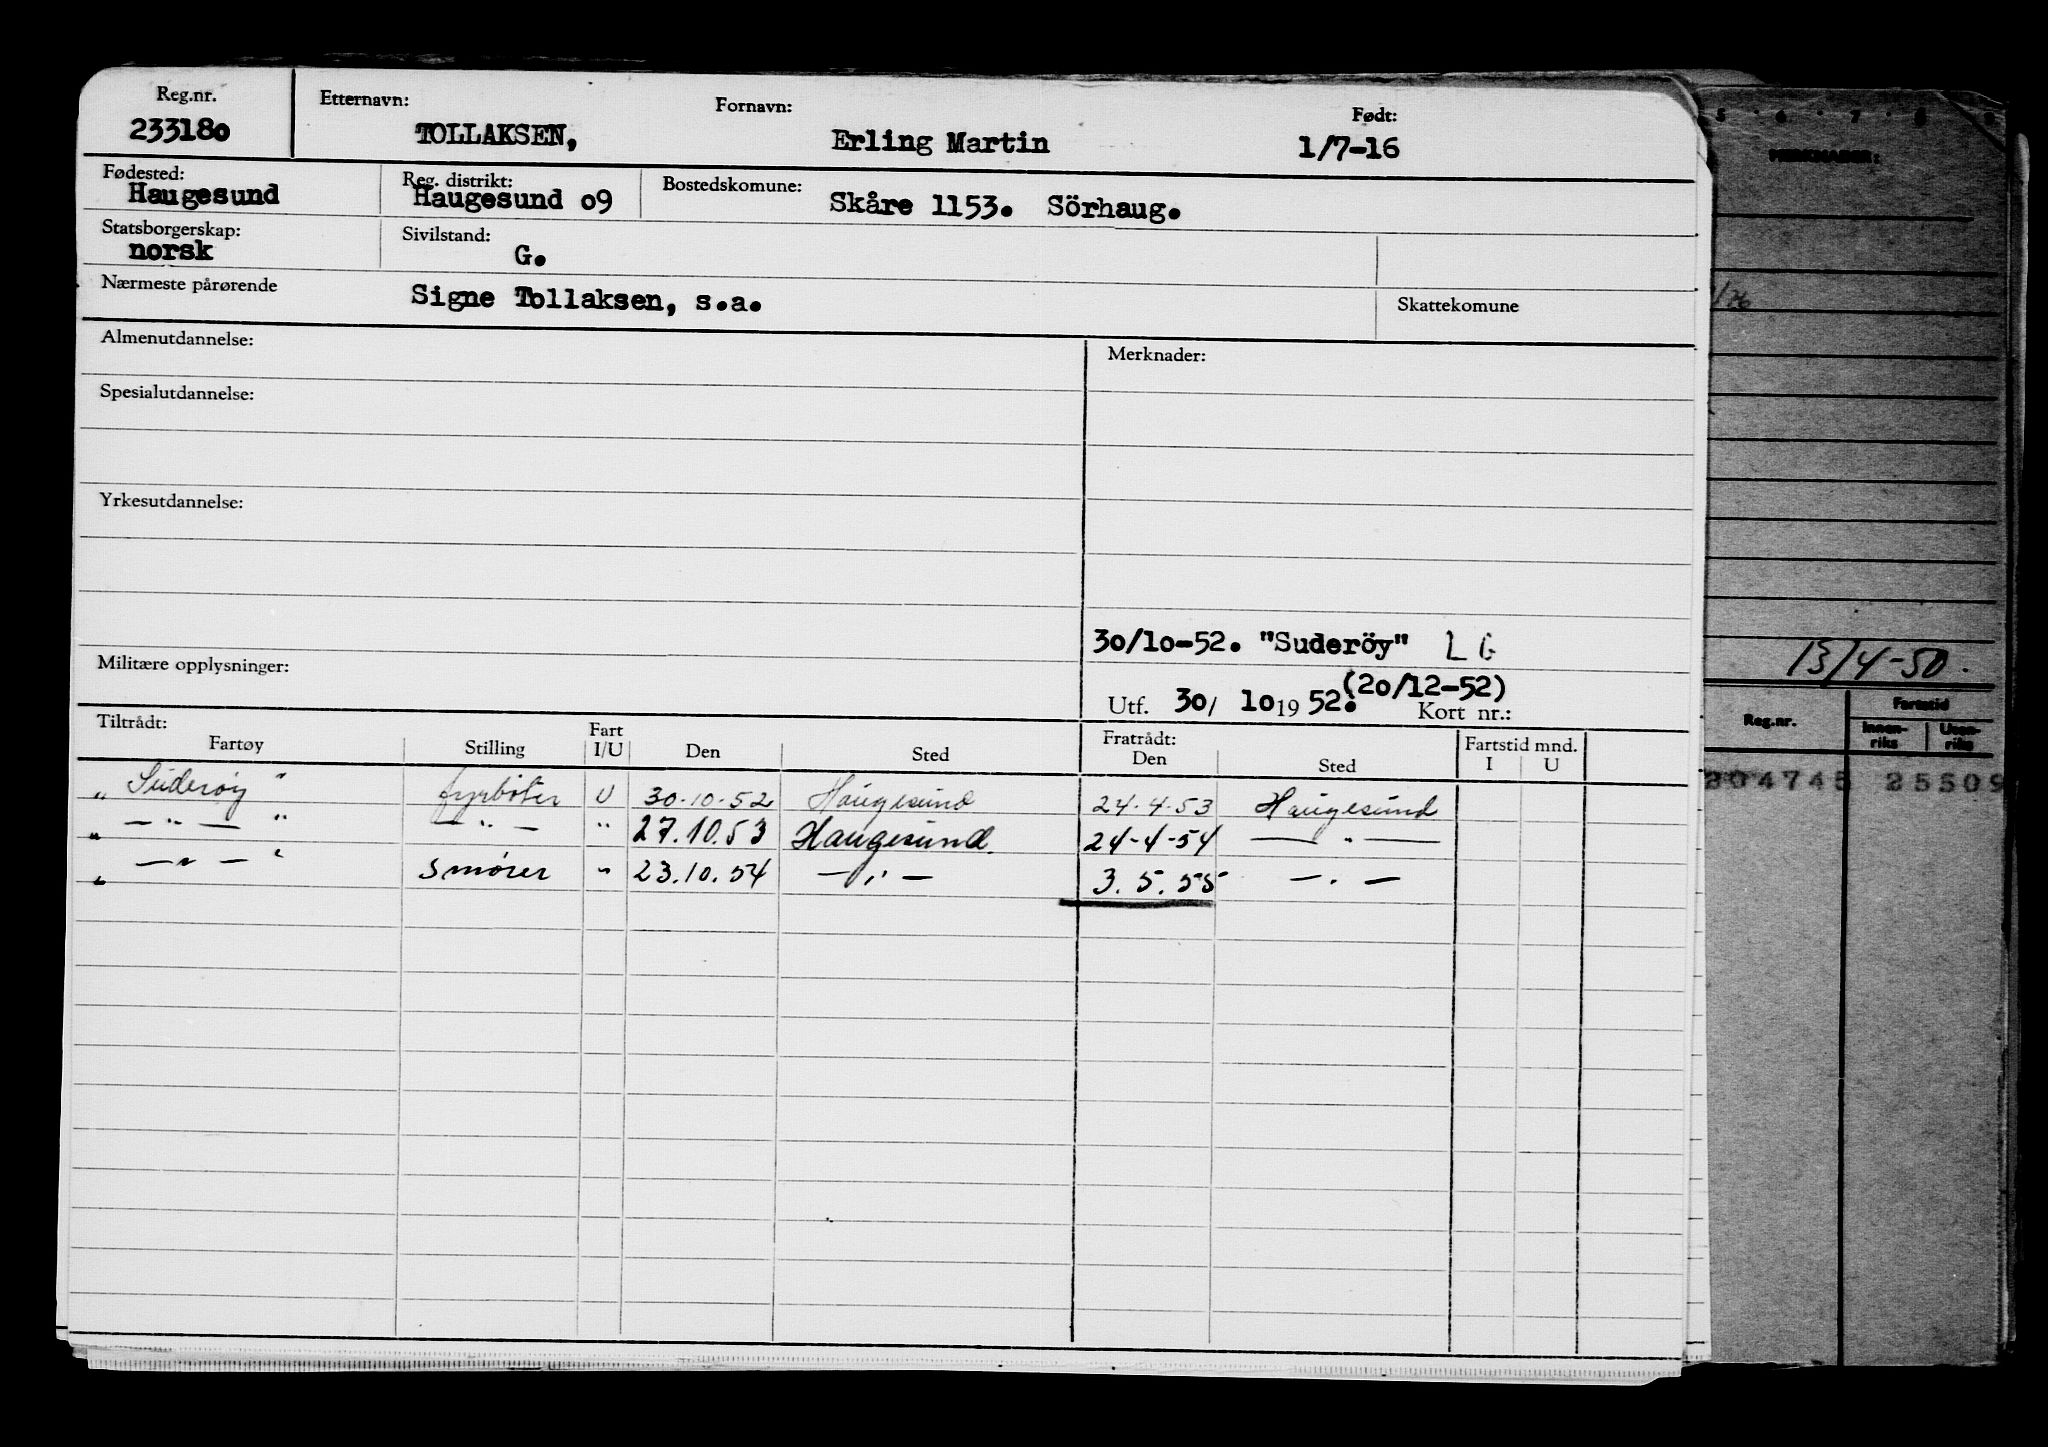 Reg.nr. Etternavn: Fornavn: Født:
233180 TOLLAKSEN, Erling Martin 1/7-16
Fødested: Reg. distrikt: Bostedskomune:
Haugesund Haugesund o9 Skåre 1153. Sörhaug.
Statsborgerskap: Sivilstand:
norsk G.
Nærmeste pårørende Signe Tollaksen, s.a. Skattekomune
Almenutdannelse: Merknader:
Spesialutdannelse:
Yrkesutdannelse:
30/10-52. "Suderöy" L G
Militære opplysninger:
(20/12-52)
Utf. 30/ 10 19 52. Kort nr.:
Tiltrådt: Fratrådt:
Fartøy Stilling Fart I/U Den Sted Den Sted Fartstid mnd. I U
" Suderøy " fyrbøter U 30-10-52 Haugesund 24-4-53 Haugesund
" — " — " — " — " 27.10.53 Haugesund. 24-4-54 — " —
" — " — " Smører " 23.10.54 — " — 3.5.55 — " —
5 6 7 8 9
MERKNADER:
/26
13/4-50.
Reg.nr. Fartstid
Innen-riks Uten-riks
204745 25509